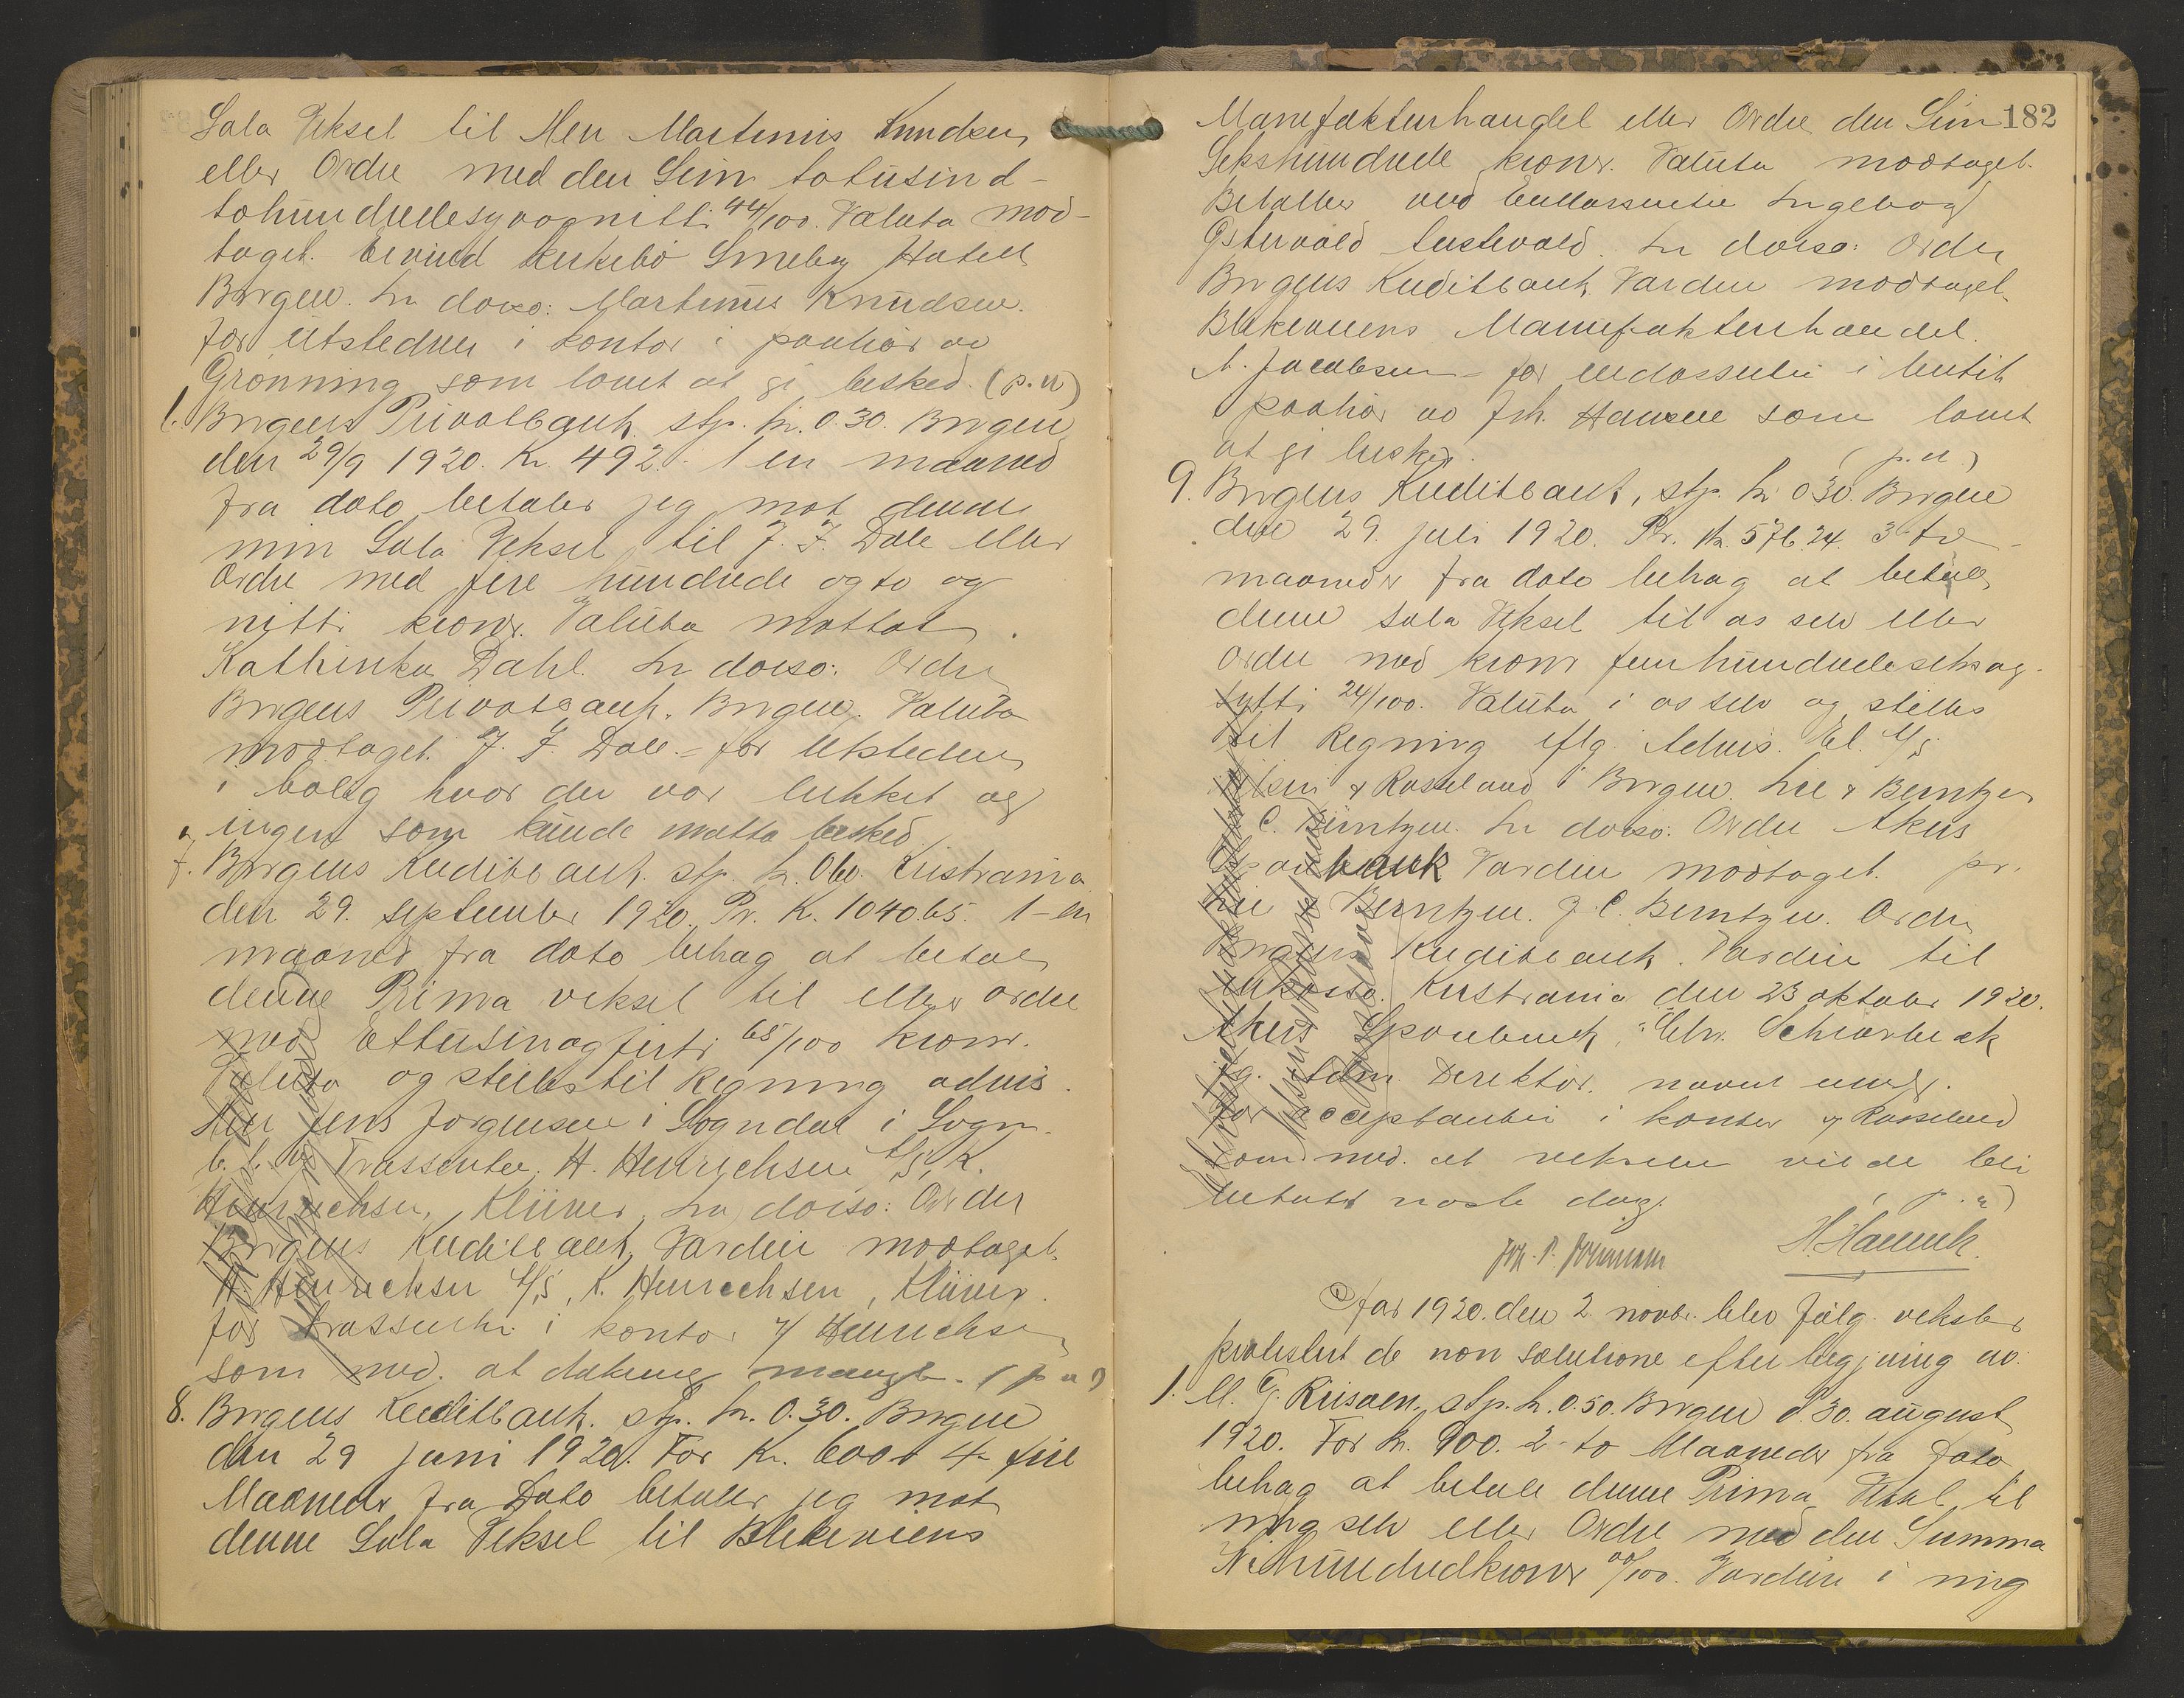 Sola Veksel til Herr Martinus Knudsen
eller Ordre med den Sum totusind-
tohundredesyvognitti 44/100. Valuta mod-
taget. Eivind Kirkebö Smeby Hotell
Bergen. In dorso: Martinus Knudsen.
for utstederen i kontor i paahör av
Grönning som lovet at gi besked. (p.u)
Bergens Privatbank. stp. kr. 0.30. Bergen
den 29/9 1920. Kr. 492.- 1 en maaned
fra dato betaler jeg mot denne
min Sola Veksel til J. F. Dale eller
Ordre med fire hundrede og to og
nitti kroner. Valuta mottat.
Kathinka Dahl. In dorso: Ordre
Bergens Privatbank. Bergen. Valuta
modtaget. J. F. Dale.- for Utstederen
i bolig hvor der var lukket og
ingen som kunde motta besked
7. Bergens Kreditbank. stp. kr. 0.60. Kristiania
den 29. september 1920. Pr. K. 1040.65. 1-en
maaned fra dato behag at betale
denne Prima veksel til eller ordre
med Ettusinogfirti 65/100 kroner.
Valuta og stilles til Regning advis.
Herr Jens Jörgensen i Sogndal i Sogn.
Trassenten, H. Henrichsen A/S, K.
Henrichsen, Klüver, In dorso: Order
Bergens Kreditbank, Værdien modtaget.
H. Henrichsen A/S, K. Henrechsen, Klüver.
for trassenten i kontor H Henrichsen
som med. at dekning mangler. (p u)
8. Bergens Kreditbank. stp. kr. 0.30. Bergen
den 29 juni 1920. For K. 600 4- fire
Maaneder fra Dato betaler jeg mot
denne Sola Veksel til Blekeviens
182
Manufakturhandel eller Ordre den Sum
Sekshundrede kroner. Valuta modtaget.
Betales ved Endossentin Ingeborg
Östervold Austevold. In dorso: Ordre
Bergens Kreditbank Værdien modtaget.
Blekeviens Manufakturhandel.
A. Jacobsen - for endossentin i butik
paahör av Joh. Hansen som lovet
at gi besked.
(p.u.)
9. Bergens Kreditbank, stp. kr 0.30. Bergen
den 29. juli 1920. Pr. Kr. 576.24. 3 tre
maaneder fra dato behag at betale
denne Sola Veksel til os selv eller
Ordre med kroner femhundredeseksog-
sytti 24/100. Valuta i os selv og stilles
til Regning iflg. Advis. El. A/S
& Rosseland Bergen. Lie & Berntzen
C. Berntzen. In dorso: Ordre Akers
Sparebank Værdien modtaget. pr.
Lie & Berntzen. J. C. Berntzen. Ordre
Bergens Kreditbank. Værdien til
inkasso. Kristiania den 23 oktober 1920.
Akers Sparebank, Chr. Schiørbeck
fg. Adm. Direktör. navn
for acceptanten i kontor v/ Rosseland
som med. at vekselen vilde bli
betalt næste dag.
(p.u)
H. Hannick.
Joh. P. Johannesen
Aar 1920. den 2. novbr. blev fölg. veksler
protestert de non solutione efter begjæring av:
1. M. G. Riisøen, stp. kr. 0.50. Bergen d. 30. august
1920. For kr. 900. 2-to Maaneder fra Dato
behag at betale denne Prima Veksel til
mig selv eller Ordre med den Summa
Nihundredkroner 00/100. Værdien i mig